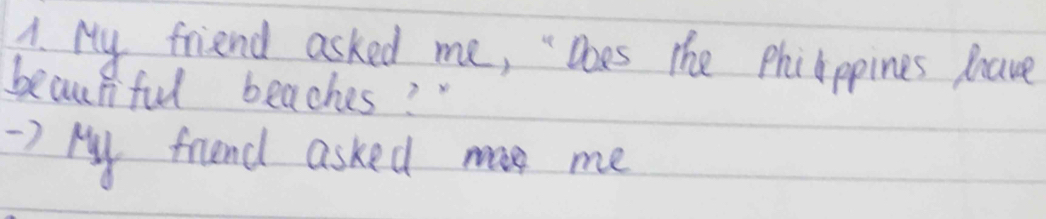 1. My friend asked me, "Does the Philippines have
beautiful beaches?"
-> My friend asked me